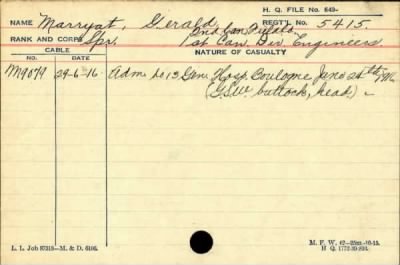 H. Q. FILE No. 649-
NAME Marryat, Gerald REGT'L No. 5415
2nd Can
RANK AND CORPS Spr. 1st Can. Div. Engineers
CABLE NATURE OF CASUALTY
No. DATE
M9079 29-6-16 Adm. to 13 Gen. Hosp. Boulogne June 26th
(G.S.W. buttock, head)
L. L. Job 87319-M. & D. 6106. M. F. W. 42-25m.-10-15.
H Q. 1772-39-893.